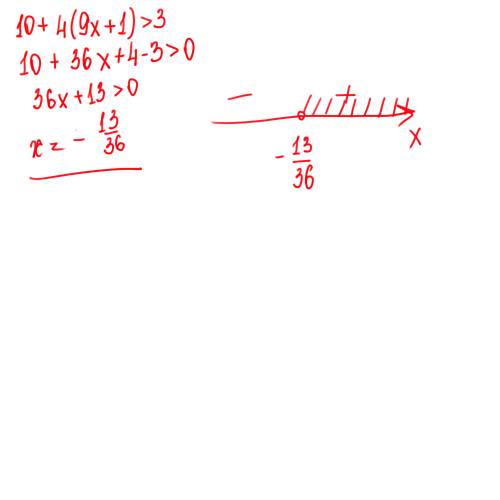 10+ 4(9x+1)>3
10 + 36x+4-3>0
36x+13>0
x = - 13/36
− +
x
- 13/36